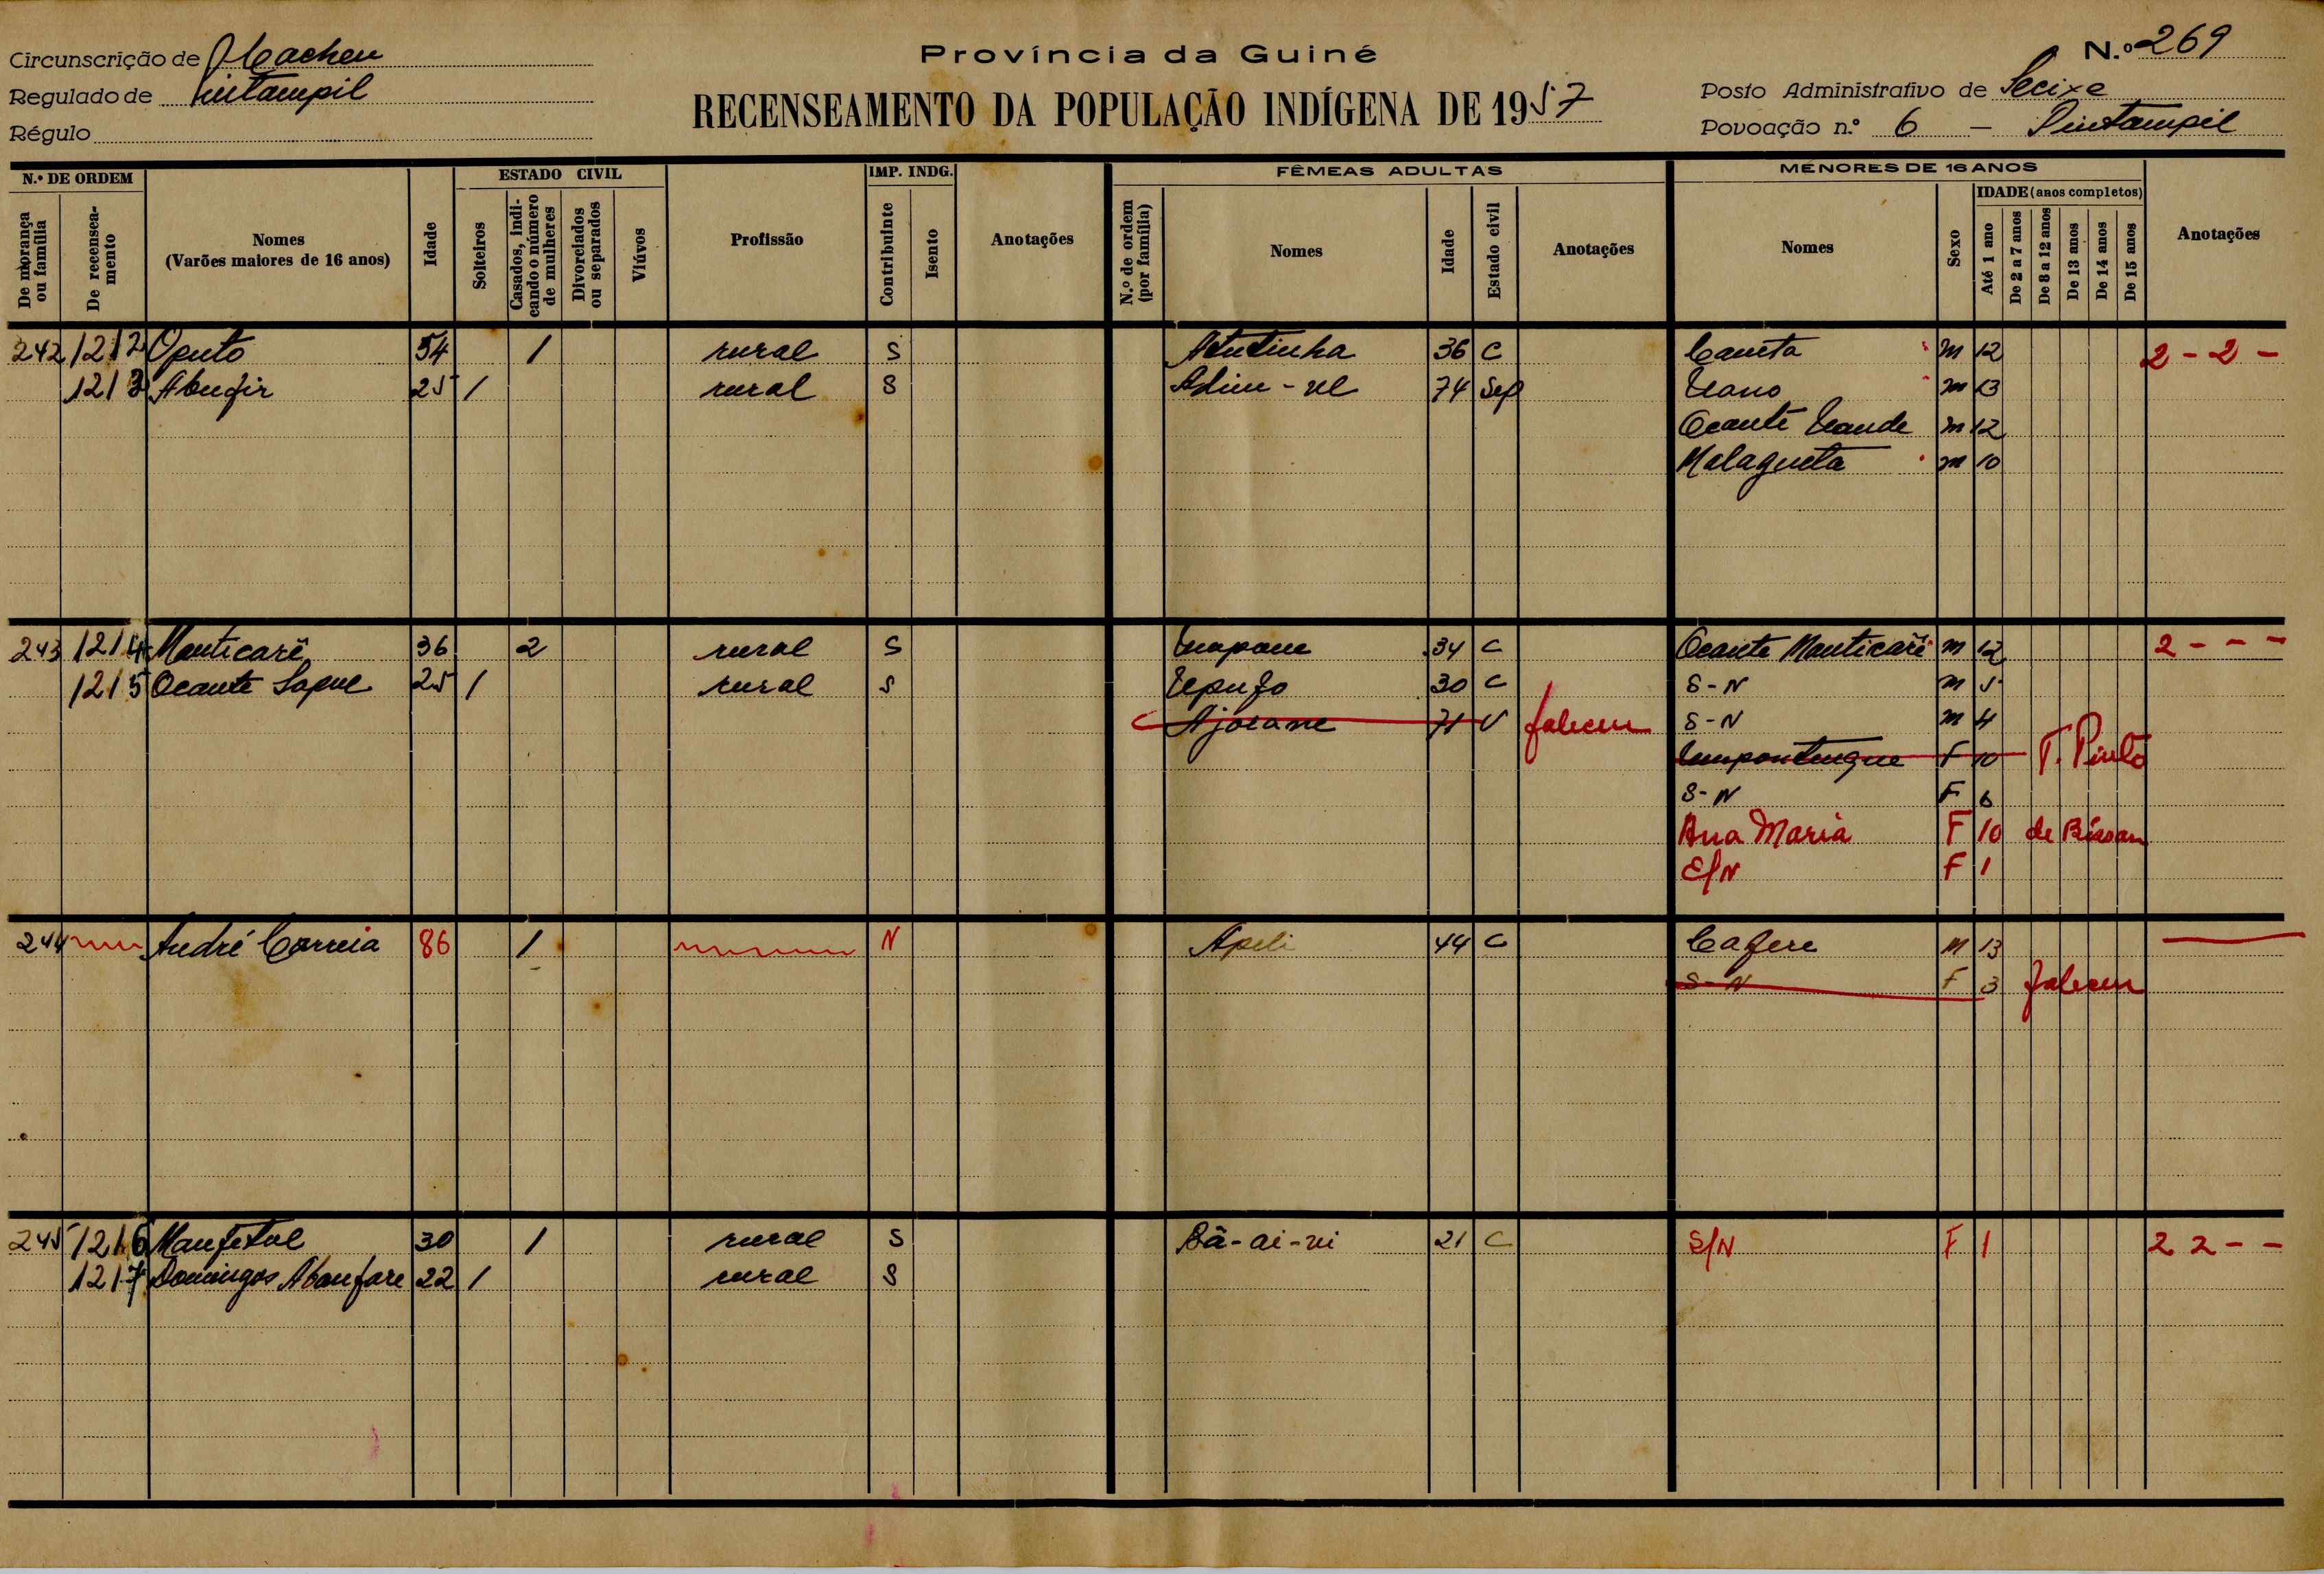 Província da Guiné
N.º 269
Circunscrição de Cacheu
Regulado de
Régulo
RECENSEAMENTO DA POPULAÇÃO INDÍGENA DE 1957
Posto Administrativo de
Povoação n.º 6 -
N.º DE ORDEM
De morança ou família
De recenseamento
Nomes (Varões maiores de 16 anos)
Idade
ESTADO CIVIL
Solteiros
Casados, indicando o número de mulheres
Divorciados ou separados
Viúvos
Profissão
IMP. INDG.
Contribuinte
Isento
Anotações
FÊMEAS ADULTAS
N.º de ordem (por família)
Nomes
Idade
Estado civil
Anotações
MENORES DE 16 ANOS
Nomes
Sexo
IDADE (anos completos)
Até 1 ano
De 2 a 7 anos
De 8 a 12 anos
De 13 anos
De 14 anos
De 15 anos
Anotações
242 1212 Oputo 54 1 rural S 36 C m 12 2 - 2 -
1213 25 1 rural S 74 Sep m 13
Ocante m 12
Malagueta m 10
243 1214 Manticarê 36 2 rural S 34 C Ocante Manticarê m 12 2 - - -
1215 Ocante 25 1 rural S 30 C S-N m 5
71 V faleceu S-N m 4
F 10 T. Pinto
S-N F 6
Ana Maria F 10 de
S/N F 1
244 André Correia 86 1 N Apeli 44 C Cafere M 13
S-N F 3 faleceu
245 1216 30 1 rural S Bâ-ai-vi 21 C S/N F 1 2 2 - -
1217 Domingos 22 1 rural S